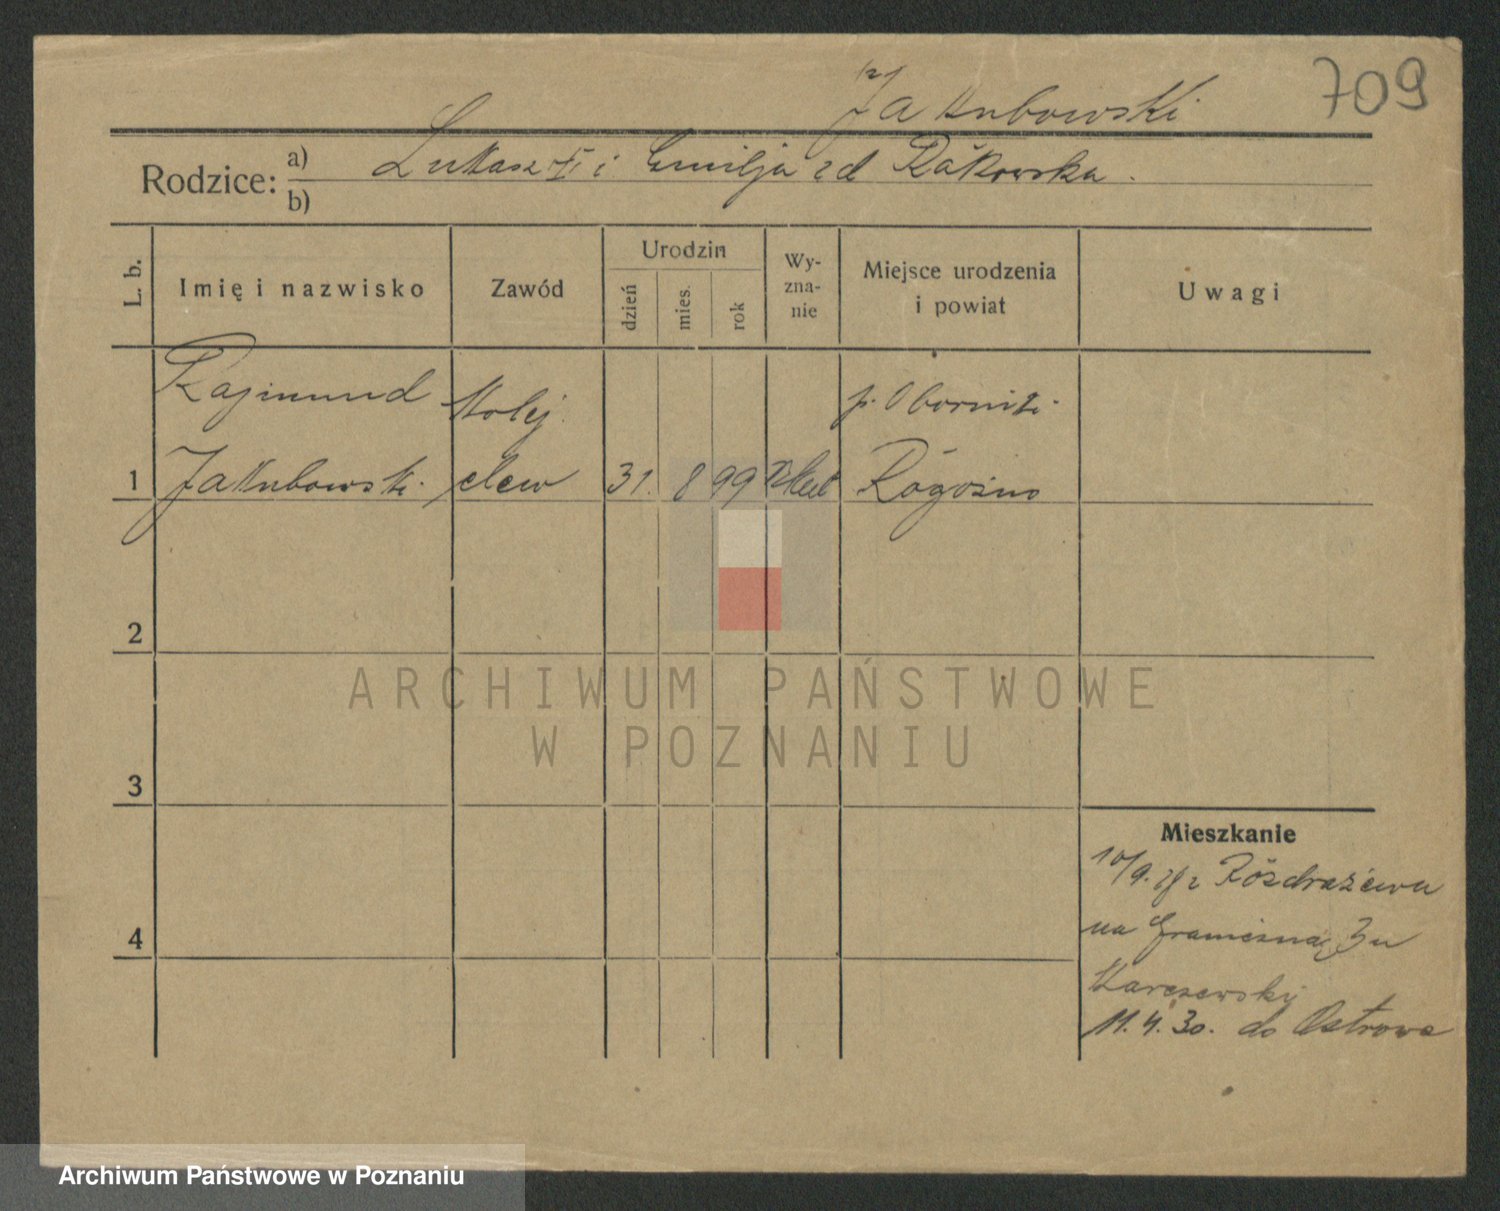 709
Jakubowski
Rodzice: a) Łukasz i Emilja zd Rakowska.
b)
L. b.
Imię i nazwisko
Zawód
Urodzin
dzień
mies.
rok
Wy-
zna-
nie
Miejsce urodzenia
i powiat
Uwagi
Rajmund
kolej.
p. Oborniki.
1
Jakubowski.
elew
31.
8
99
Rogoźno
2
3
4
Mieszkanie
10/9. z Rozdrażewa
na Graniczną 3 u
Karczewski
11.4.30. do Ostrowa
ARCHIWUM PAŃSTWOWE
W POZNANIU
Archiwum Państwowe w Poznaniu